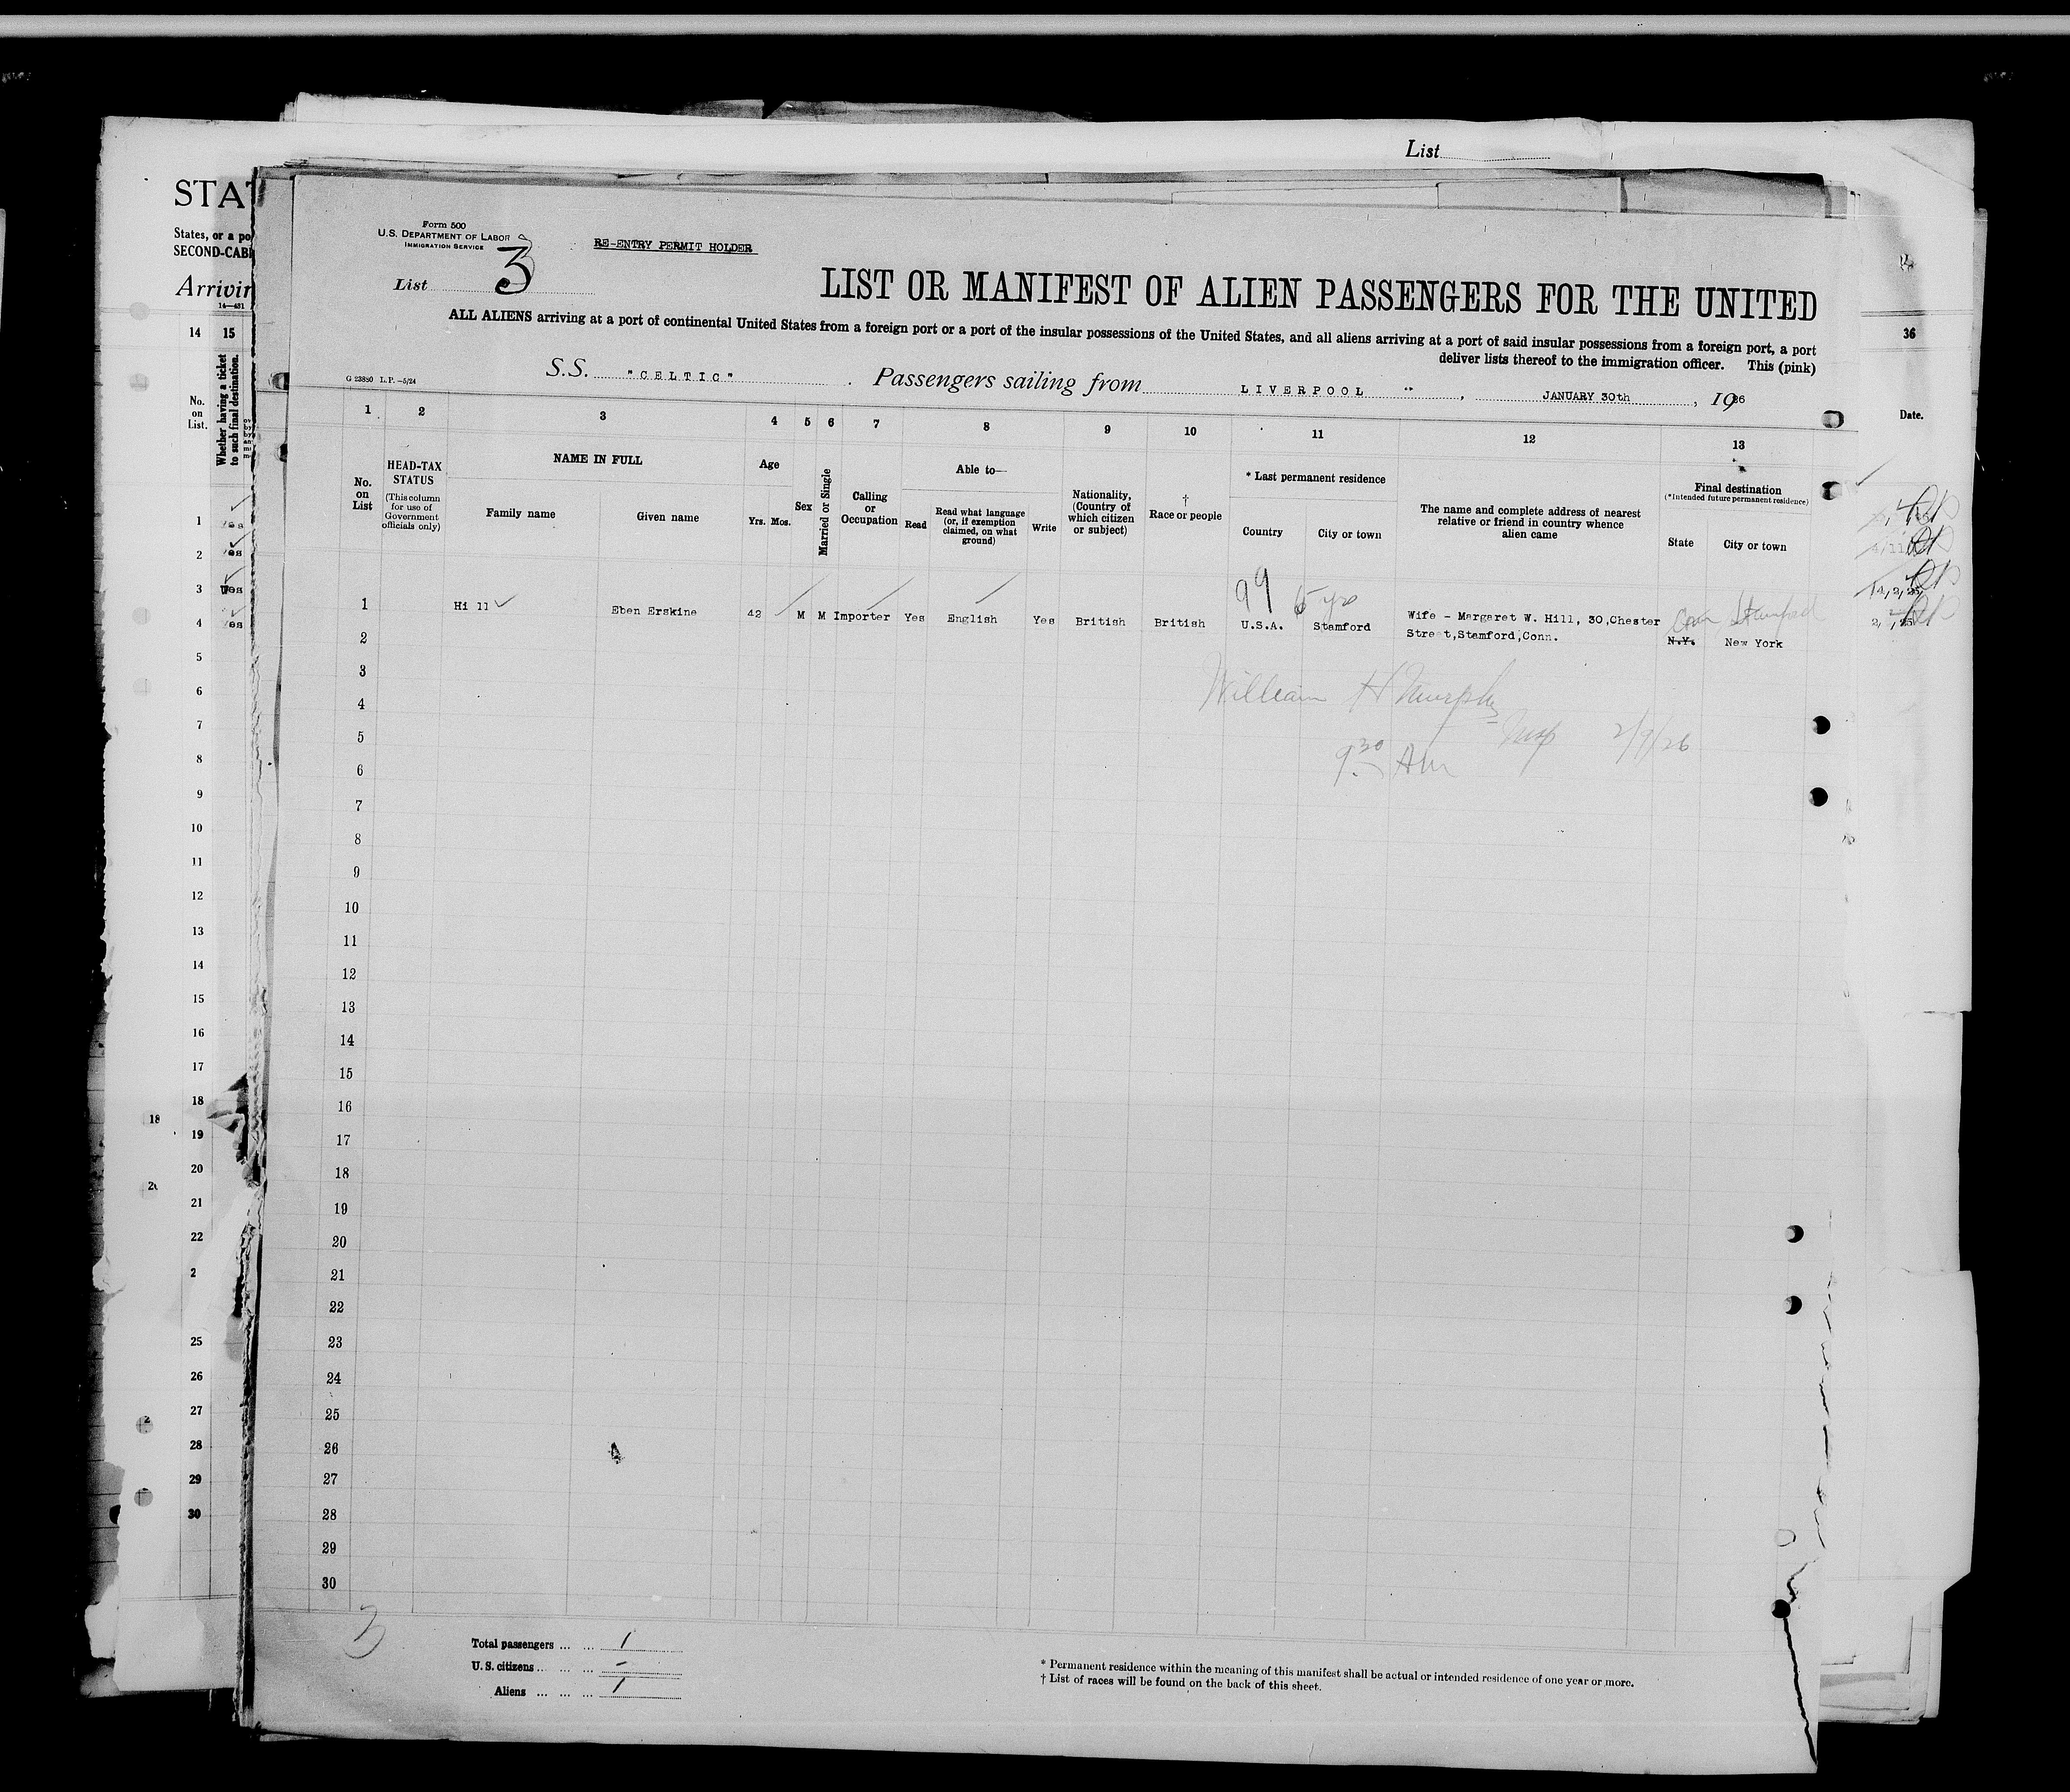 List
STAT
States, or a po
SECOND-CABI
Arrivin
14—431
14 15
No.
on
List.
Whether having a ticket
to such final destination.
1 Yes
2 Yes
3 Yes
4 Yes
5
6
7
8
9
10
11
12
13
14
15
16
17
18
19
20
21
22
2
25
26
27
28
29
30
18
2
36
Date.
Form 500
U.S. DEPARTMENT OF LABOR
IMMIGRATION SERVICE
RE-ENTRY PERMIT HOLDER
List 3
LIST OR MANIFEST OF ALIEN PASSENGERS FOR THE UNITED
ALL ALIENS arriving at a port of continental United States from a foreign port or a port of the insular possessions of the United States, and all aliens arriving at a port of said insular possessions from a foreign port, a port
deliver lists thereof to the immigration officer. This (pink)
G 23880 L.P.—5/24
S.S. "CELTIC" Passengers sailing from LIVERPOOL, JANUARY 30th, 1926
1 2 3 4 5 6 7 8 9 10 11 12 13
No.
on
List
HEAD-TAX
STATUS
(This column
for use of
Government
officials only)
NAME IN FULL
Family name Given name
Age
Yrs. Mos.
Sex
Married or Single
Calling
or
Occupation
Able to—
Read
Read what language
(or, if exemption
claimed, on what
ground)
Write
Nationality,
(Country of
which citizen
or subject)
†
Race or people
* Last permanent residence
Country City or town
The name and complete address of nearest
relative or friend in country whence
alien came
Final destination
(*Intended future permanent residence)
State City or town
99 5 yrs
1 Hill Eben Erskine 42 M M Importer Yes English Yes British British U.S.A. Stamford Wife - Margaret W. Hill, 30,Chester Conn Stamford
2 Street,Stamford,Conn. N.Y. New York
3
William H Murphy
4
5 Insp 2/9/26
9.30 AM
6
7
8
9
10
11
12
13
14
15
16
17
18
19
20
21
22
23
24
25
26
27
28
29
30
3
Total passengers ... ... 1
U. S. citizens ... ... ... -
Aliens ... ... ... 1
* Permanent residence within the meaning of this manifest shall be actual or intended residence of one year or more.
† List of races will be found on the back of this sheet.